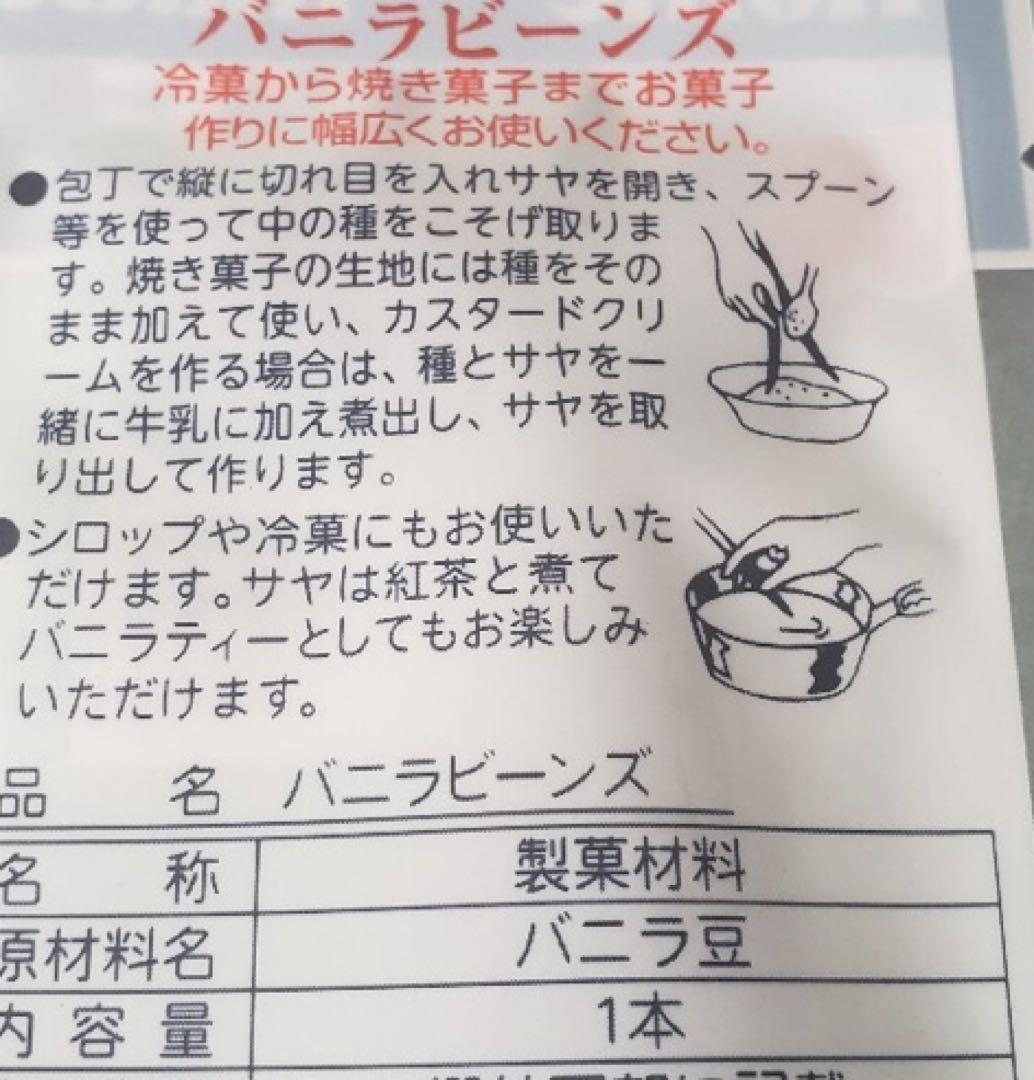 バニラビーンズ
冷菓から焼き菓子までお菓子
作りに幅広くお使いください。
●包丁で縦に切れ目を入れサヤを開き、スプーン
等を使って中の種をこそげ取りま
す。焼き菓子の生地には種をその
まま加えて使い、カスタードクリ
ームを作る場合は、種とサヤを一
緒に牛乳に加え煮出し、サヤを取
り出して作ります。
●シロップや冷菓にもお使いいた
だけます。サヤは紅茶と煮て
バニラティーとしてもお楽しみ
いただけます。
品名 バニラビーンズ
名称 製菓材料
原材料名 バニラ豆
内容量 1本